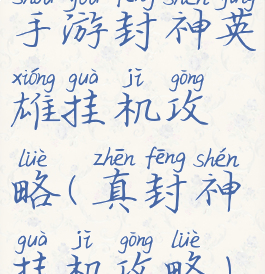 shǒu yóu fēng shén yīng
手游封神英
xióng guà jī gōng
雄挂机攻
lüè zhēn fēng shén
略(真封神
guà jī gōng lüè
挂机攻略)